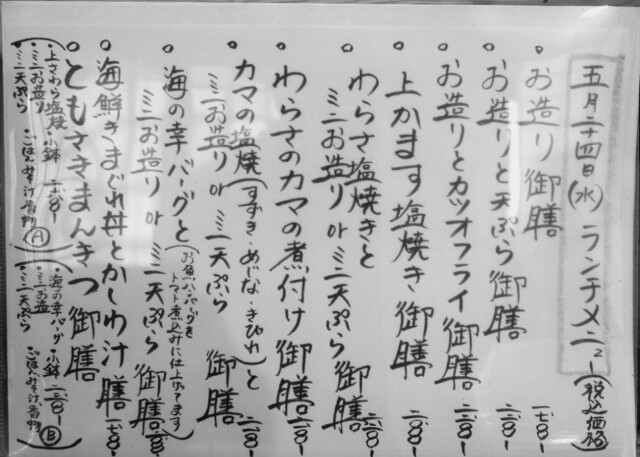 五月二十四日(水) ランチメニュー(税込価格)
○お造り御膳 一七〇八-
○お造りと天ぷら御膳 二二〇八-
○お造りとカツオフライ御膳 二二〇八-
○上かます塩焼き御膳 二二〇八-
○わらさ塩焼きと
ミニお造り or ミニ天ぷら御膳
○わらさのカマの煮付け御膳
○カマの塩焼(すずき・めじな・きびれ)と
ミニお造り or ミニ天ぷら 御膳
○海の幸バーグと(お魚ハンバーグを
トマト煮込みに仕上げてます)
ミニお造り or ミニ天ぷら 御膳
○海鮮きまぐれ丼とかしわ汁膳
○ともさきまんきつ御膳
・上さわら塩焼・小鉢
・ミニお造り
・ミニ天ぷら ごはんみそ汁香物 A
・海の幸バーグ・小鉢
・ミニお造り
・ミニ天ぷら ごはんみそ汁香物 B